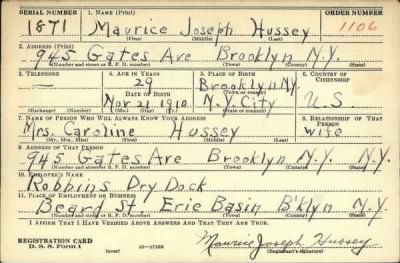 SERIAL NUMBER 1. NAME (Print) ORDER NUMBER
1871 Maurice Joseph Hussey 1106
(First) (Middle) (Last)
2. ADDRESS (Print)
945 Gates Ave Brooklyn N.Y.
(Number and street or R. F. D. number) (Town) (County) (State)
3. TELEPHONE 4. AGE IN YEARS 5. PLACE OF BIRTH 6. COUNTRY OF CITIZENSHIP
— 29 Brooklyn N.Y.
DATE OF BIRTH (Town or county)
Nov 21 1910 N.Y. City U.S
(Exchange) (Number) (Mo.) (Day) (Yr.) (State or country)
7. NAME OF PERSON WHO WILL ALWAYS KNOW YOUR ADDRESS 8. RELATIONSHIP OF THAT PERSON
Mrs. Caroline Hussey wife
(Mr., Mrs., Miss) (First) (Middle) (Last)
9. ADDRESS OF THAT PERSON
945 Gates Ave Brooklyn N.Y. N.Y.
(Number and street or R. F. D. number) (Town) (County) (State)
10. EMPLOYER'S NAME
Robbins Dry Dock
11. PLACE OF EMPLOYMENT OR BUSINESS
Beard St. Erie Basin B'klyn N.Y.
(Number and street or R. F. D. number) (Town) (County) (State)
I AFFIRM THAT I HAVE VERIFIED ABOVE ANSWERS AND THAT THEY ARE TRUE.
REGISTRATION CARD
D. S. S. Form 1 (over) 16—17105 Maurice Joseph Hussey
(Registrant's signature)